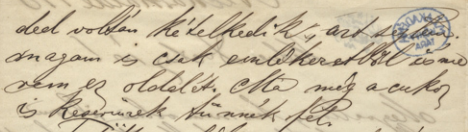 ded voltán kételkedik", azt
magam is csak emlékezetből isme
rem ez oldalét. Ma még a cukor
is keserünek tünnék fel.